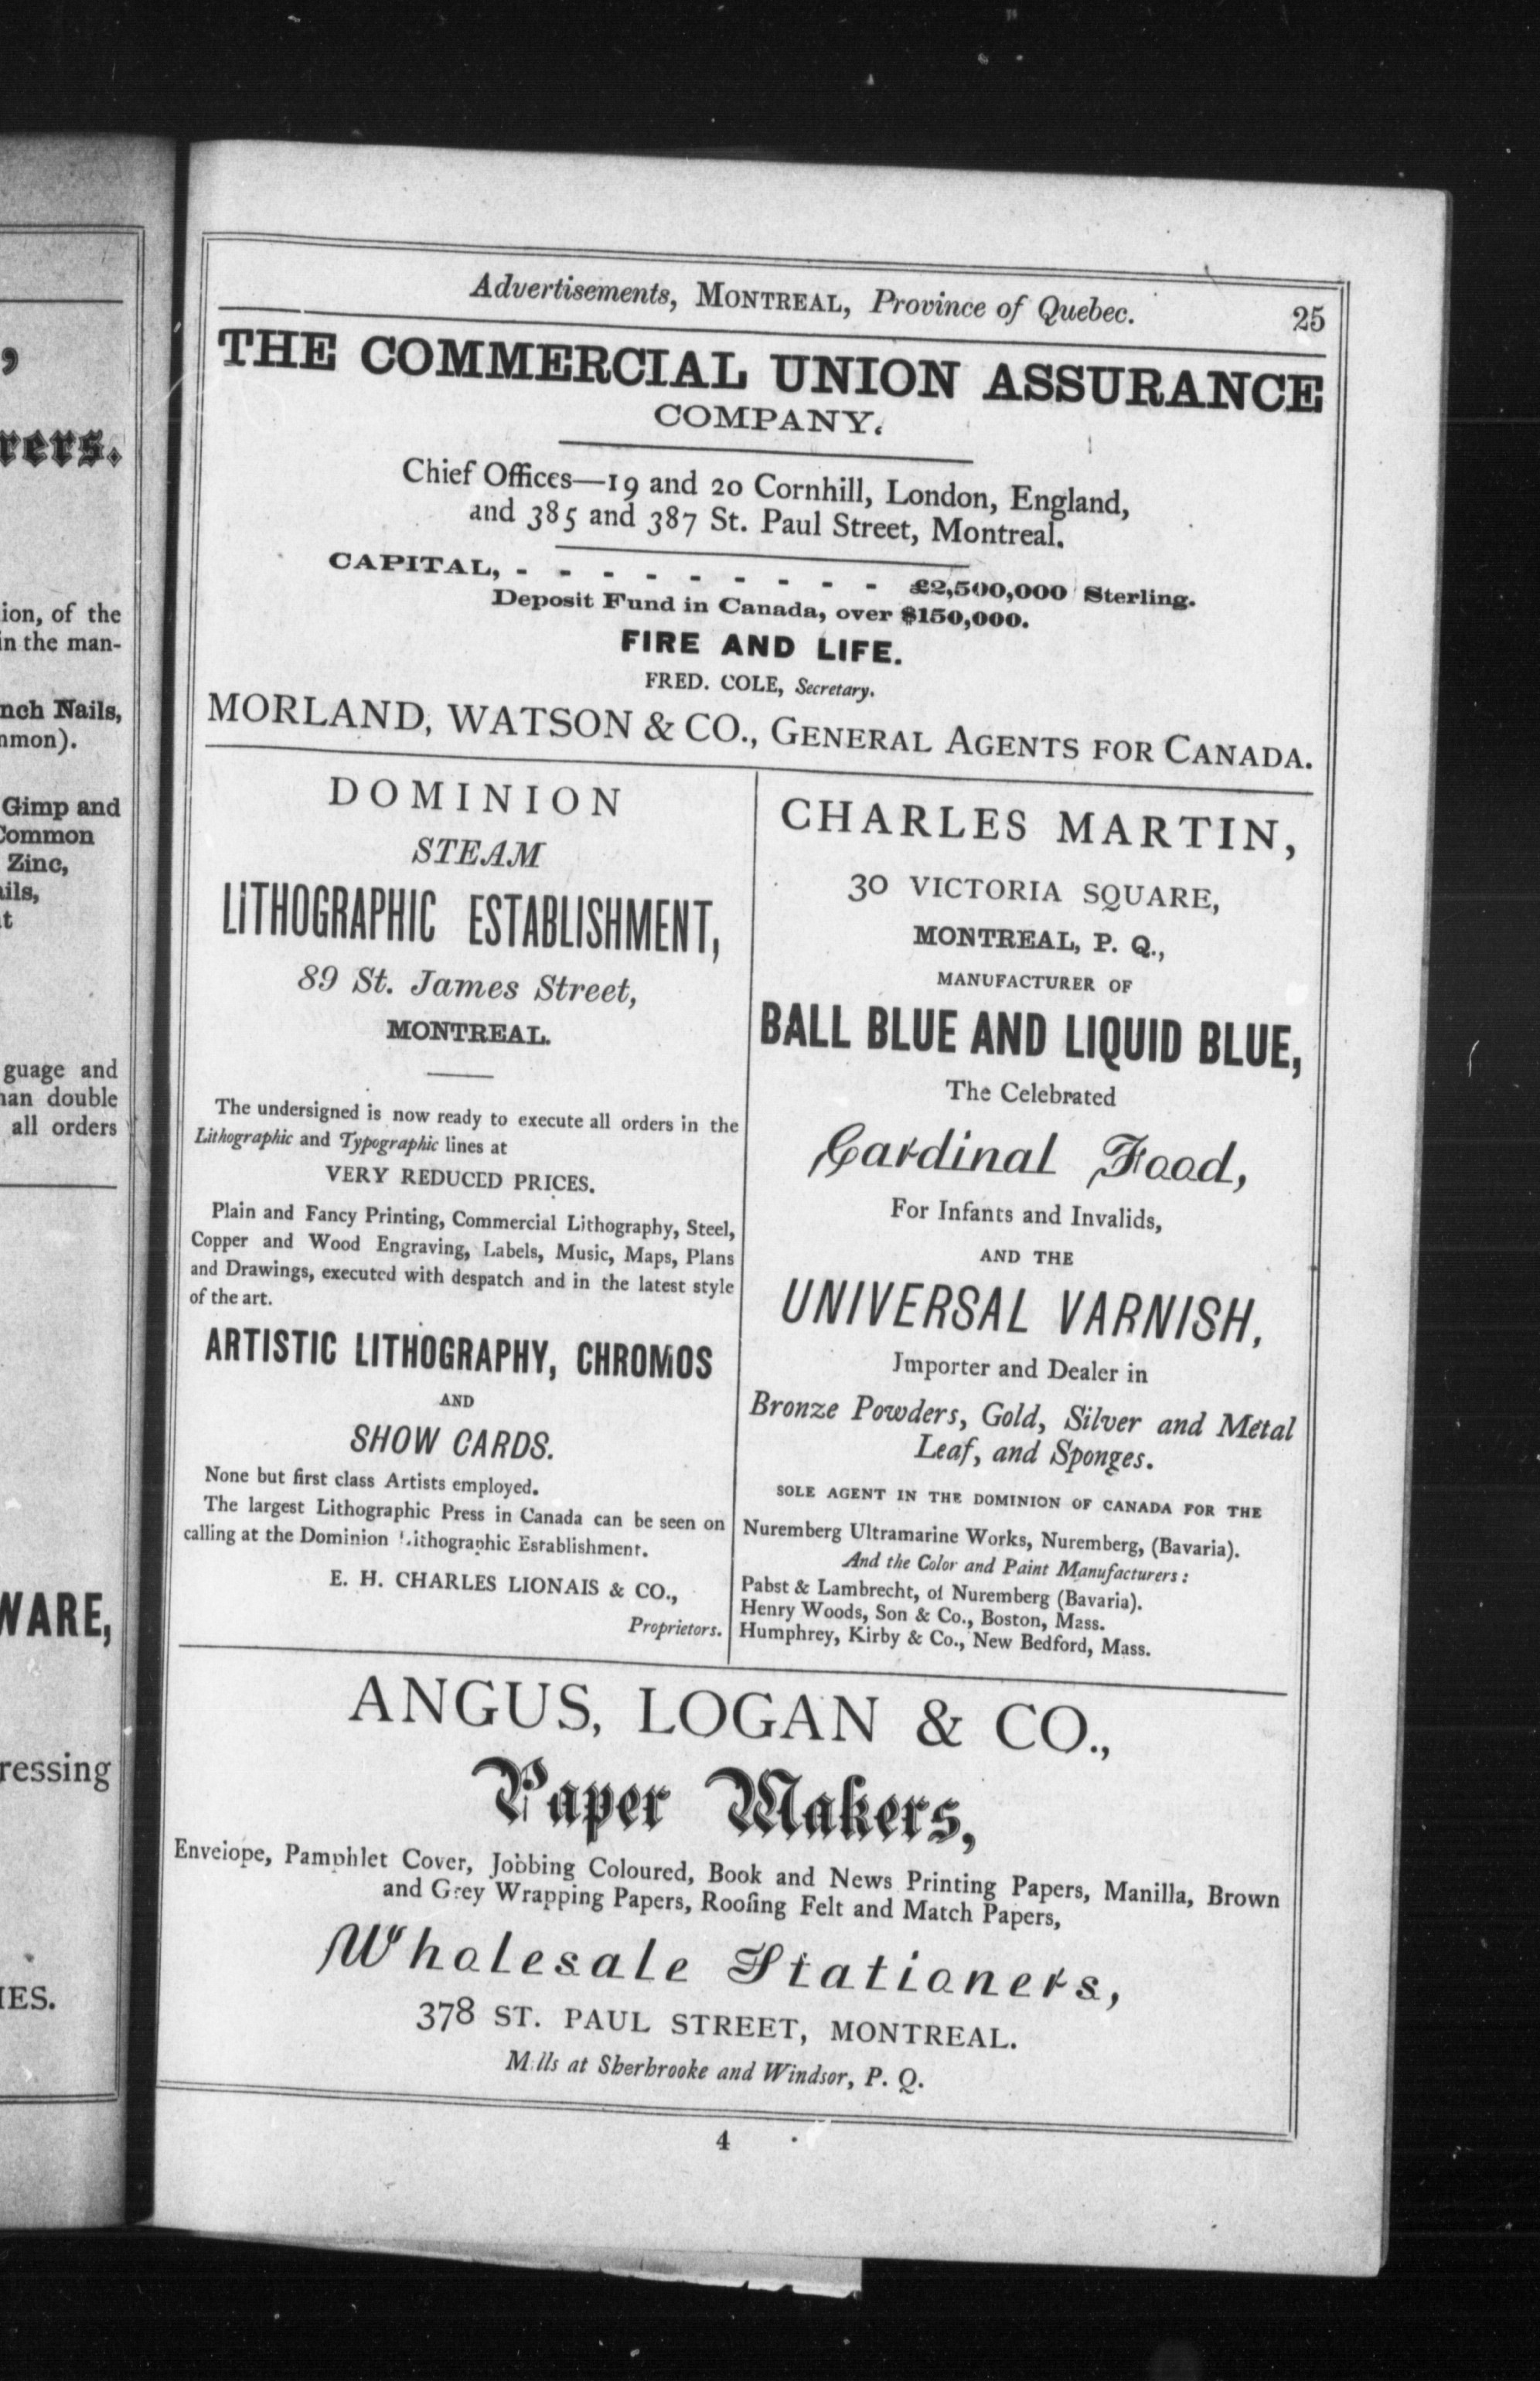 Advertisements, MONTREAL, Province of Quebec. 25
THE COMMERCIAL UNION ASSURANCE
COMPANY.
Chief Offices—19 and 20 Cornhill, London, England,
and 385 and 387 St. Paul Street, Montreal.
CAPITAL, - - - - - - - - - £2,500,000 Sterling.
Deposit Fund in Canada, over $150,000.
FIRE AND LIFE.
FRED. COLE, Secretary.
MORLAND, WATSON & CO., GENERAL AGENTS FOR CANADA.
DOMINION
STEAM
LITHOGRAPHIC ESTABLISHMENT,
89 St. James Street,
MONTREAL.
The undersigned is now ready to execute all orders in the
Lithographic and Typographic lines at
VERY REDUCED PRICES.
Plain and Fancy Printing, Commercial Lithography, Steel,
Copper and Wood Engraving, Labels, Music, Maps, Plans
and Drawings, executed with despatch and in the latest style
of the art.
ARTISTIC LITHOGRAPHY, CHROMOS
AND
SHOW CARDS.
None but first class Artists employed.
The largest Lithographic Press in Canada can be seen on
calling at the Dominion Lithographic Establishment.
E. H. CHARLES LIONAIS & CO.,
Proprietors.
CHARLES MARTIN,
30 VICTORIA SQUARE,
MONTREAL, P. Q.,
MANUFACTURER OF
BALL BLUE AND LIQUID BLUE,
The Celebrated
Cardinal Food,
For Infants and Invalids,
AND THE
UNIVERSAL VARNISH,
Importer and Dealer in
Bronze Powders, Gold, Silver and Metal
Leaf, and Sponges.
SOLE AGENT IN THE DOMINION OF CANADA FOR THE
Nuremberg Ultramarine Works, Nuremberg, (Bavaria).
And the Color and Paint Manufacturers:
Pabst & Lambrecht, of Nuremberg (Bavaria).
Henry Woods, Son & Co., Boston, Mass.
Humphrey, Kirby & Co., New Bedford, Mass.
ANGUS, LOGAN & CO.,
Paper Makers,
Envelope, Pamphlet Cover, Jobbing Coloured, Book and News Printing Papers, Manilla, Brown
and Grey Wrapping Papers, Roofing Felt and Match Papers,
Wholesale Stationers,
378 ST. PAUL STREET, MONTREAL.
Mills at Sherbrooke and Windsor, P. Q.
4